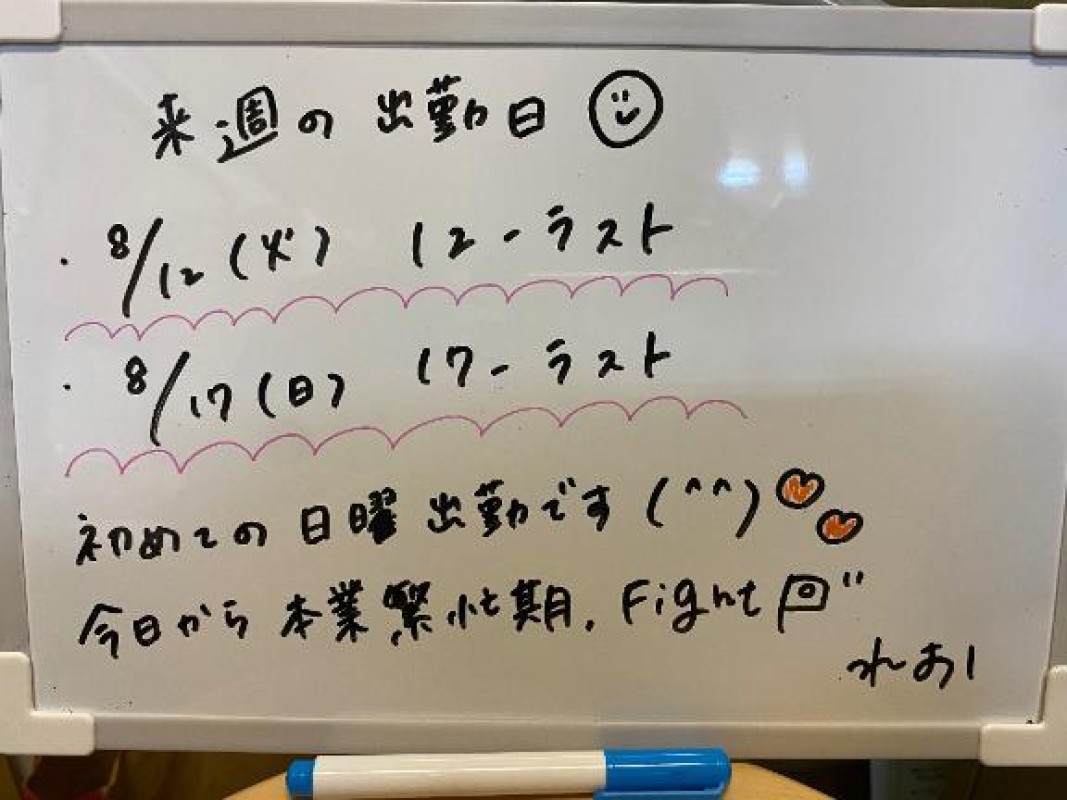 来週の出勤日
・8/12(火) 12-ラスト
・8/17(日) 17-ラスト
初めての日曜出勤です(^^)
今日から本業繁忙期. Fight